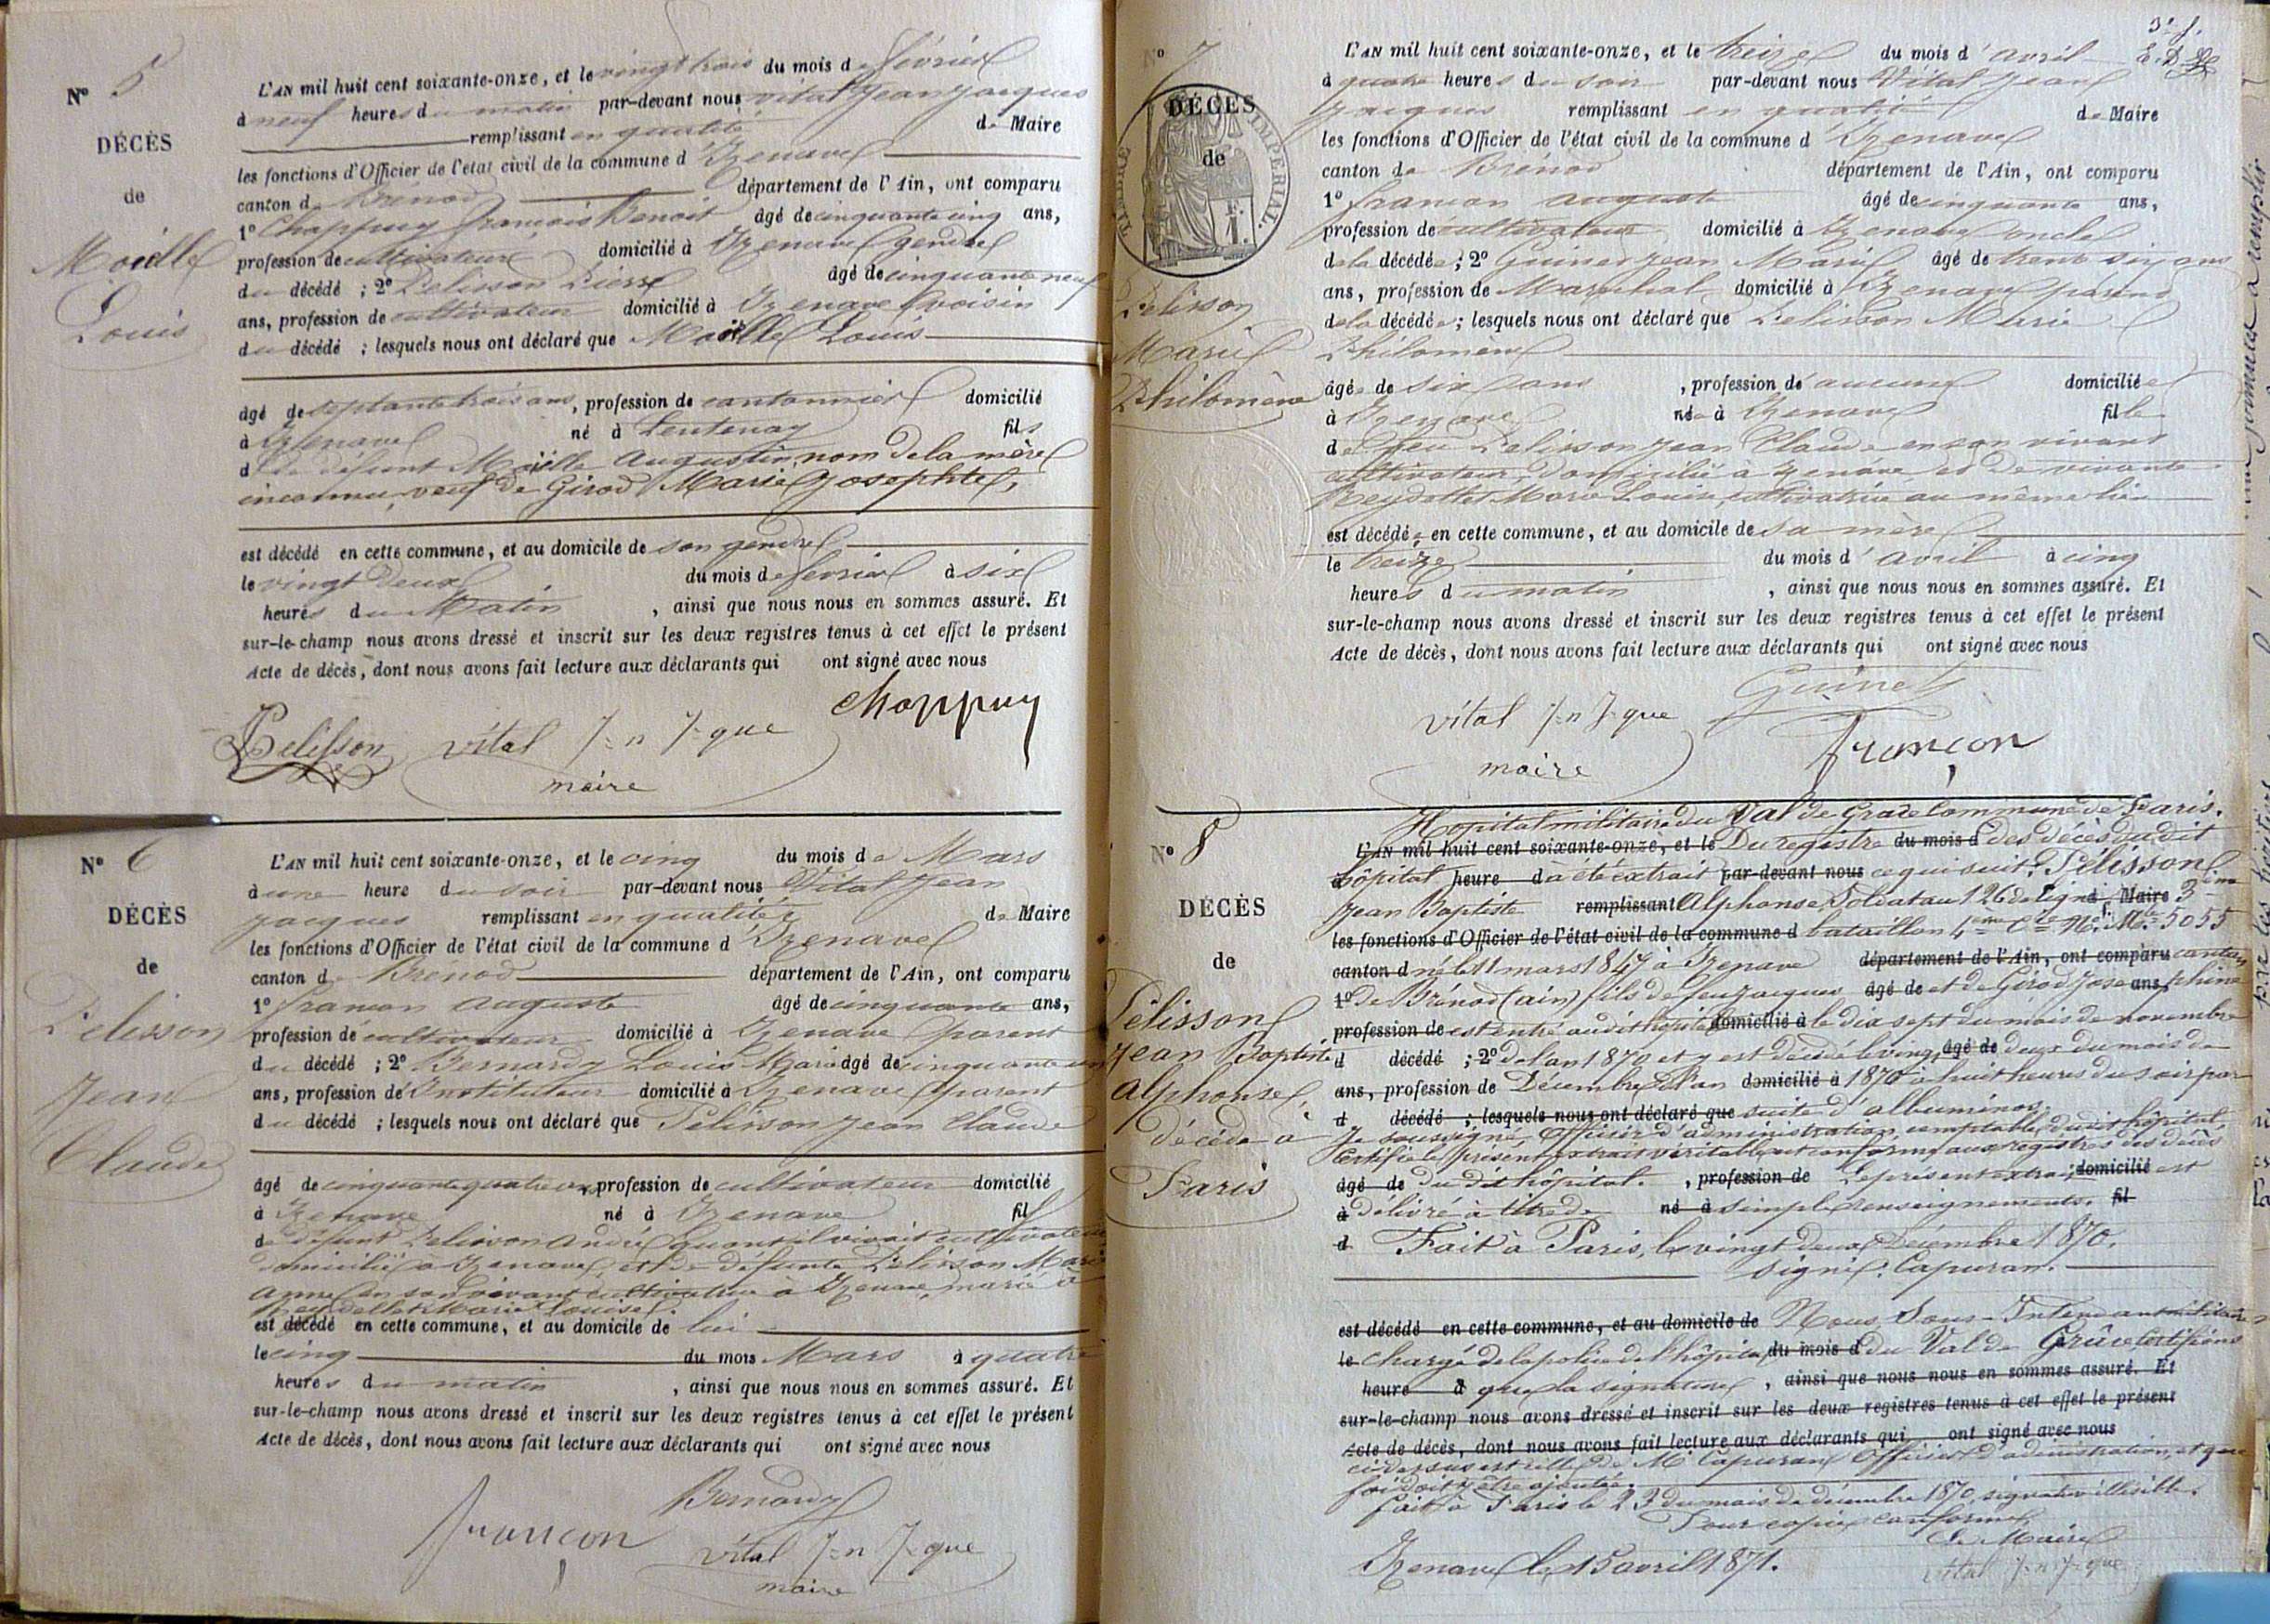 N° 5
DÉCÈS
de
Moëlle
Louis
L'AN mil huit cent soixante-onze, et le vingt trois du mois de février
à neuf heures du matin par-devant nous vital jean jacques
remplissant en qualité de Maire
les fonctions d'Officier de l'état civil de la commune d'Izenave
canton de Brénod département de l'Ain, ont comparu
1° Chappuy françois Benoit âgé de cinquante cinq ans,
profession de cultivateur domicilié à Izenave gendre
du décédé ; 2° Pelisson Pierre âgé de cinquante neuf
ans, profession de cultivateur domicilié à Izenave voisin
du décédé ; lesquels nous ont déclaré que Moëlle Louis
âgé de septante trois ans, profession de cantonnier domicilié
à Izenave né à Lentenay fils
de défunt Moëlle Augustin, nom de la mère
inconnu, veuf de Girod Marie Josephte,
est décédé en cette commune, et au domicile de son gendre
le vingt deux du mois de fevrier à six
heures du Matin, ainsi que nous nous en sommes assuré. Et
sur-le-champ nous avons dressé et inscrit sur les deux registres tenus à cet effet le présent
Acte de décès, dont nous avons fait lecture aux déclarants qui ont signé avec nous
Pelisson vital J=n J=que Choppuy
maire
N° 6
DÉCÈS
de
Pelisson
Jean
Claude
L'AN mil huit cent soixante-onze, et le cinq du mois de Mars
à une heure du soir par-devant nous Vital Jean
jacques remplissant en qualité de Maire
les fonctions d'Officier de l'état civil de la commune d'Izenave
canton de Brenod département de l'Ain, ont comparu
1° françon auguste âgé de cinquante ans,
profession de cultivateur domicilié à Izenave parent
du décédé ; 2° Bernardy Louis Marie âgé de cinquante un
ans, profession d'Instituteur domicilié à Izenave parent
du décédé ; lesquels nous ont déclaré que Pelisson Jean Claude
âgé de cinquante quatre ans, profession de cultivateur domicilié
à Izenave né à Izenave fil
de défunt Pelisson André quant il vivait cultivateur
domicilié à Izenave, et de défunte Pelisson Marie
Anne en son vivant cultivatrice à Izenave, marié à
Reydellet Marie Louise.
est décédé en cette commune, et au domicile de lui
le cinq du mois Mars à quatre
heures du matin, ainsi que nous nous en sommes assuré. Et
sur-le-champ nous avons dressé et inscrit sur les deux registres tenus à cet effet le présent
Acte de décès, dont nous avons fait lecture aux déclarants qui ont signé avec nous
Bernardy
françon vital J=n J=que
maire
3e f.
N° 7
DÉCÈS
de
TIMBRE IMPÉRIAL
1 F.
Pelisson
Marie
Philomène
L'AN mil huit cent soixante-onze, et le treize du mois d'avril
à quatre heures du soir par-devant nous Vital Jean
jacques remplissant en qualité de Maire
les fonctions d'Officier de l'état civil de la commune d'Izenave
canton de Brénod département de l'Ain, ont comparu
1° françon auguste âgé de cinquante ans,
profession de cultivateur domicilié à Izenave oncle
de la décédée ; 2° Guinet Jean Marie âgé de trente six ans
ans, profession de Maréchal domicilié à Izenave parent
de la décédée ; lesquels nous ont déclaré que Pelisson Marie
Philomène
âgée de six ans, profession d'aucune domiciliée
à Izenave née à Izenave fille
de feu Pelisson jean Claude en son vivant
cultivateur, domicilié à Izenave, et de vivante
Reydellet Marie Louise, cultivatrice au même lieu
est décédée en cette commune, et au domicile de sa mère
le treize du mois d'avril à cinq
heures du matin, ainsi que nous nous en sommes assuré. Et
sur-le-champ nous avons dressé et inscrit sur les deux registres tenus à cet effet le présent
Acte de décès, dont nous avons fait lecture aux déclarants qui ont signé avec nous
Guinet
vital J=n J=que
françon
maire
N° 8
DÉCÈS
de
Pélisson
Jean Baptiste
Alphonse,
décédé à
Paris
Hopital militaire du Val de Grace Commune de Paris.
L'AN mil huit cent soixante-onze, et le Du registre du mois d des décès dudit
hôpital heure d a été extrait par-devant nous ce qui suit : Pélisson
Jean Baptiste remplissant Alphonse, Soldat au 126 de ligne d Maire 3ème
les fonctions d'Officier de l'état civil de la commune d bataillon 4ème Cie No. Mle 5055
canton d né le 11 mars 1847 à Izenave département de l'Ain, ont comparu canton
1° de Brénod (ain) fils de feu jacques âgé de et de Girod Jose ans, phine
profession de est entré audit hôpital domicilié à le dix sept du mois de novembre
d décédé ; 2° de l'an 1870 et y est décédé le vingt âgé de deux du mois de
ans, profession de Décembre de l'an domicilié à 1870 à huit heures du soir par
d décédé ; lesquels nous ont déclaré que suite d'albuminos.
Je soussigné, Officier d'administration comptable dudit hôpital,
Certifie le présent extrait véritable et conforme aux registres des décès
âgé de du dit hôpital. , profession de Le présent extrait domicilié est
à délivré à titre de né à simples renseignements. fil
d Fait à Paris, le vingt deux Décembre 1870.
signé : Capuran.
est décédé en cette commune, et au domicile de Nous, Sous-Intendant militaire
le chargé de la police de l'hôpital du mois d du Val de Grâce Certifions
heure d que la signature , ainsi que nous nous en sommes assuré. Et
sur-le-champ nous avons dressé et inscrit sur les deux registres tenus à cet effet le présent
Acte de décès, dont nous avons fait lecture aux déclarants qui ont signé avec nous
ci-dessus est celle de Mr Capuran Officier d'administration, et que
foi doit y être ajoutée.
fait à Paris le 23 du mois de décembre 1870, signature illisible.
Pour copie conforme
Le Maire
Izenave le 15 avril 1871. vital J=n J=que